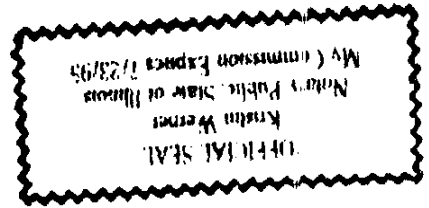 "OFFICIAL SEAL"
Kristin Werner
Notary Public, State of Illinois
My Commission Expires 7/23/95